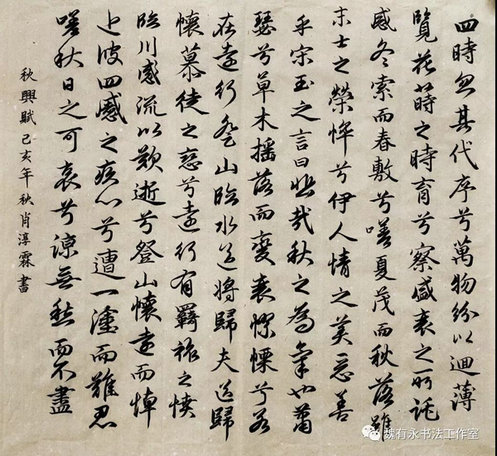 四時忽其代序兮萬物紛以迴薄
覽花蒔之時育兮察盛衰之所託
感冬索而春敷兮嗟夏茂而秋落雖
末士之榮悴兮伊人情之美惡善
乎宋玉之言曰悲哉秋之為氣也蕭
瑟兮草木搖落而變衰憭慄兮若
在遠行登山臨水送將歸夫送歸
懷慕徒之戀兮遠行有羈旅之憤
臨川感流以歎逝兮登山懷遠而悼
近彼四慼之疚心兮遭一塗而難忍
嗟秋日之可哀兮諒無愁而不盡
秋興賦己亥年秋肖淳霖書
魏有永书法工作室